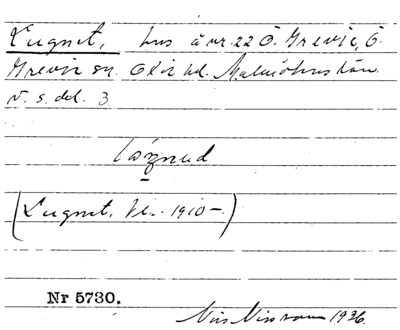 Lugnet, hus å nr. 22 Ö. Grevie, Ö.
Grevie sn. Oxie hd. Malmöhus län.
V. s. del. 3
(Lugnet, 1910–)
Nr 5730.
Nils Nilsson 1936.